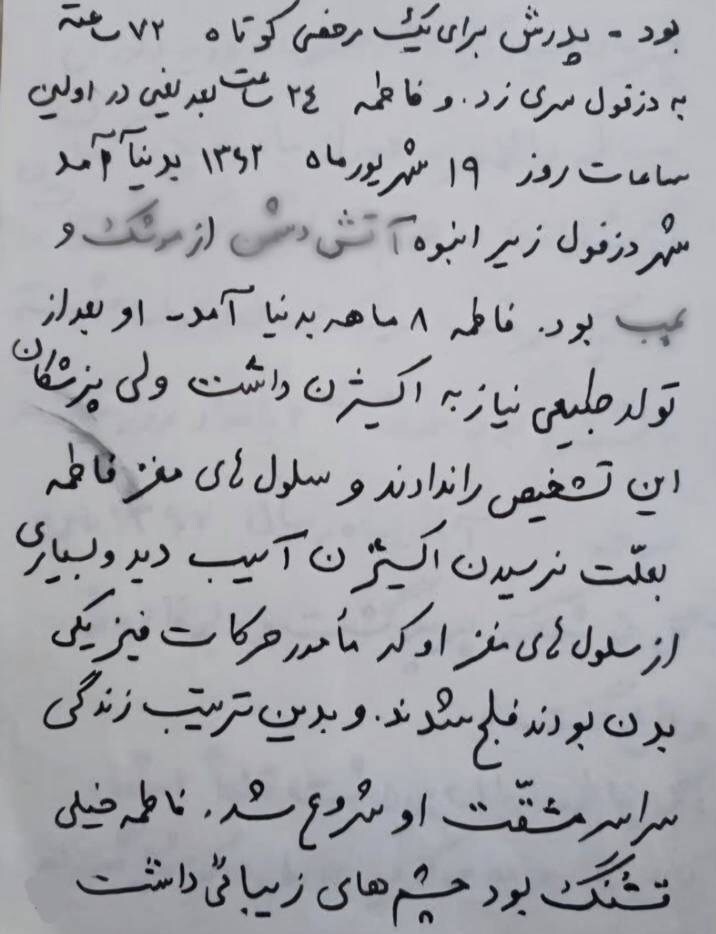 بود - پدرش برای یک مرخصی کوتاه ۷۲ ساعته
به دزفول سری زد. و فاطمه ۲٤ ساعت بعد یعنی در اولین
ساعات روز ۱۹ شهریورماه ۱۳۶۲ بدنیا آمد
شهر دزفول زیر انبوه آتش دشمن از موشک و
بمب بود. فاطمه ۸ ماهه بدنیا آمد - او بعد از
تولد طبیعی نیاز به اکسیژن داشت ولی پزشکان
این تشخیص را ندادند و سلول های مغز فاطمه
بعلّت نرسیدن اکسیژن آسیب دید و بسیاری
از سلول های مغز او که مأمور حرکات فیزیکی
بدن بودند فلج شدند. و بدین ترتیب زندگی
سراسر مشقّت او شروع شد. فاطمه خیلی
قشنگ بود چشم های زیبائی داشت